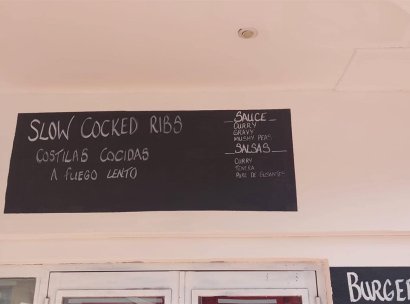 SLOW COCKED RIBS
COSTILAS COCIDAS
A FUEGO LENTO
SAUCE
CURRY
GRAVY
MUSHY PEAS
SALSAS
CURRY
PURE DE GUISANTES
BURGE